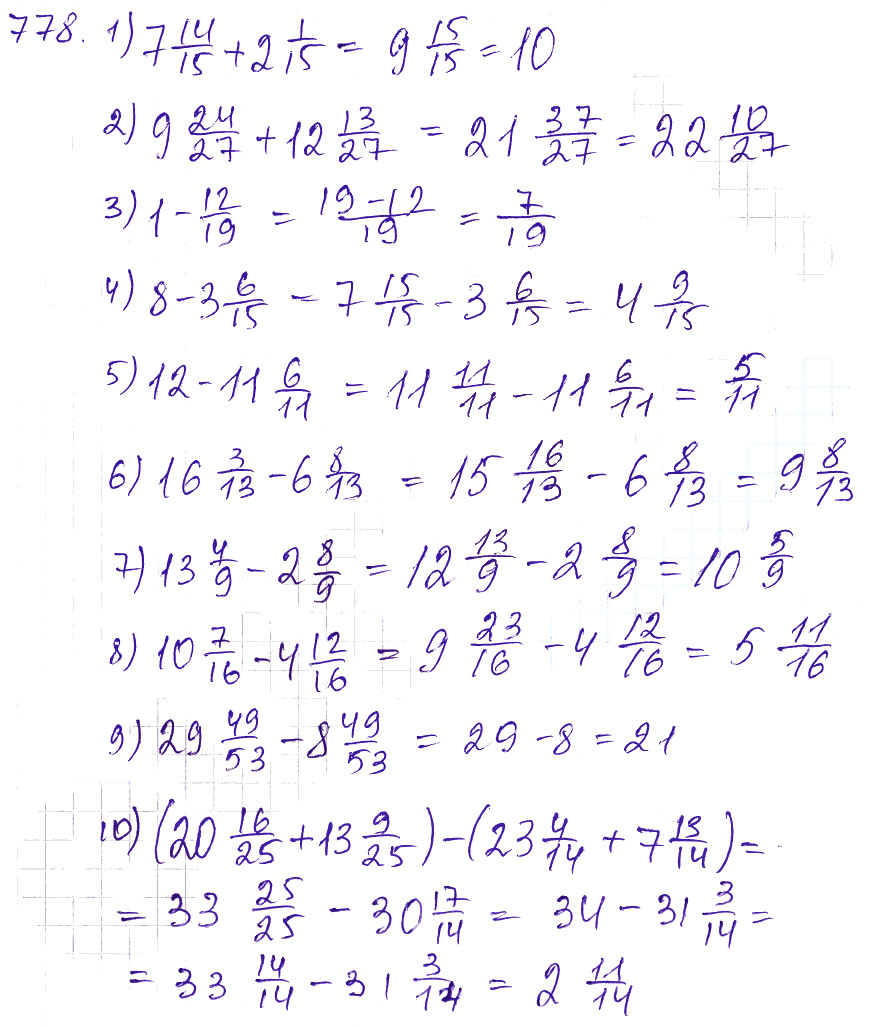 778. 1) 7 14/15 + 2 1/15 = 9 15/15 = 10
2) 9 24/27 + 12 13/27 = 21 37/27 = 22 10/27
3) 1 - 12/19 = (19-12)/19 = 7/19
4) 8 - 3 6/15 - 7 15/15 - 3 6/15 = 4 9/15
5) 12 - 11 6/11 = 11 11/11 - 11 6/11 = 5/11
6) 16 3/13 - 6 8/13 = 15 16/13 - 6 8/13 = 9 8/13
7) 13 4/9 - 2 8/9 = 12 13/9 - 2 8/9 = 10 5/9
8) 10 7/16 - 4 12/16 = 9 23/16 - 4 12/16 = 5 11/16
9) 29 49/53 - 8 49/53 = 29 - 8 = 21
10) (20 16/25 + 13 9/25) - (23 4/14 + 7 13/14) =
= 33 25/25 - 30 17/14 = 34 - 31 3/14 =
= 33 14/14 - 31 3/14 = 2 11/14